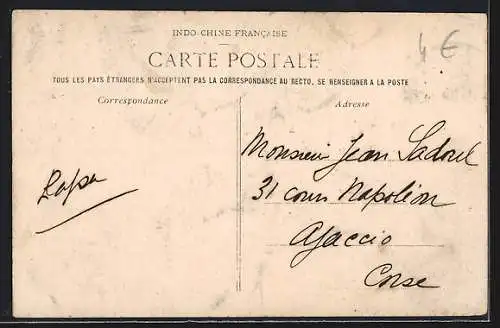 INDO-CHINE FRANÇAISE
CARTE POSTALE
TOUS LES PAYS ÉTRANGERS N'ACCEPTENT PAS LA CORRESPONDANCE AU RECTO, SE RENSEIGNER A LA POSTE
4 €
Correspondance
Adresse
Monsieur Jean
31 cours Napoléon
Ajaccio
Corse